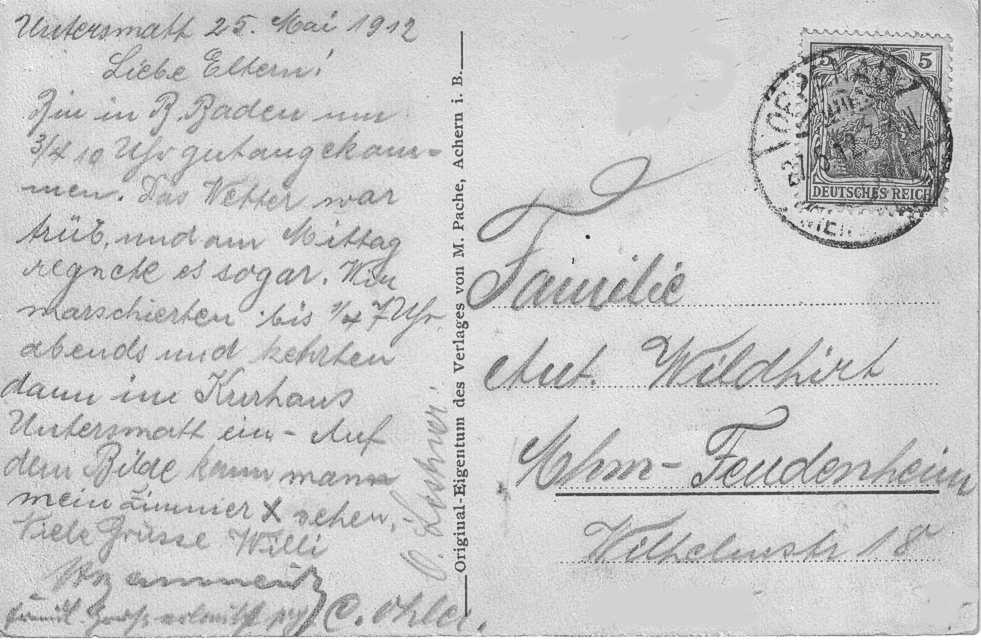 Untersmatt 25. Mai 1912
Liebe Eltern!
Bin in B. Baden um
3/4 10 Uhr gut angekom-
men. Das Wetter war
trüb, und am Mittag
regnete es sogar. Wir
marschierten bis 1/4 7 Uhr
abends und kehrten
dann im Kurhaus
Untersmatt ein - Auf
dem Bilde kann mann
mein Zimmer X sehen.
Viele Grüsse Willi
C. Ohler.
Original-Eigentum des Verlages von M. Pache, Achern i. B.
5 5
DEUTSCHES REICH
Familie
Ant. Wildhirt
Mhm-Feudenheim
Wilhelmstr 18